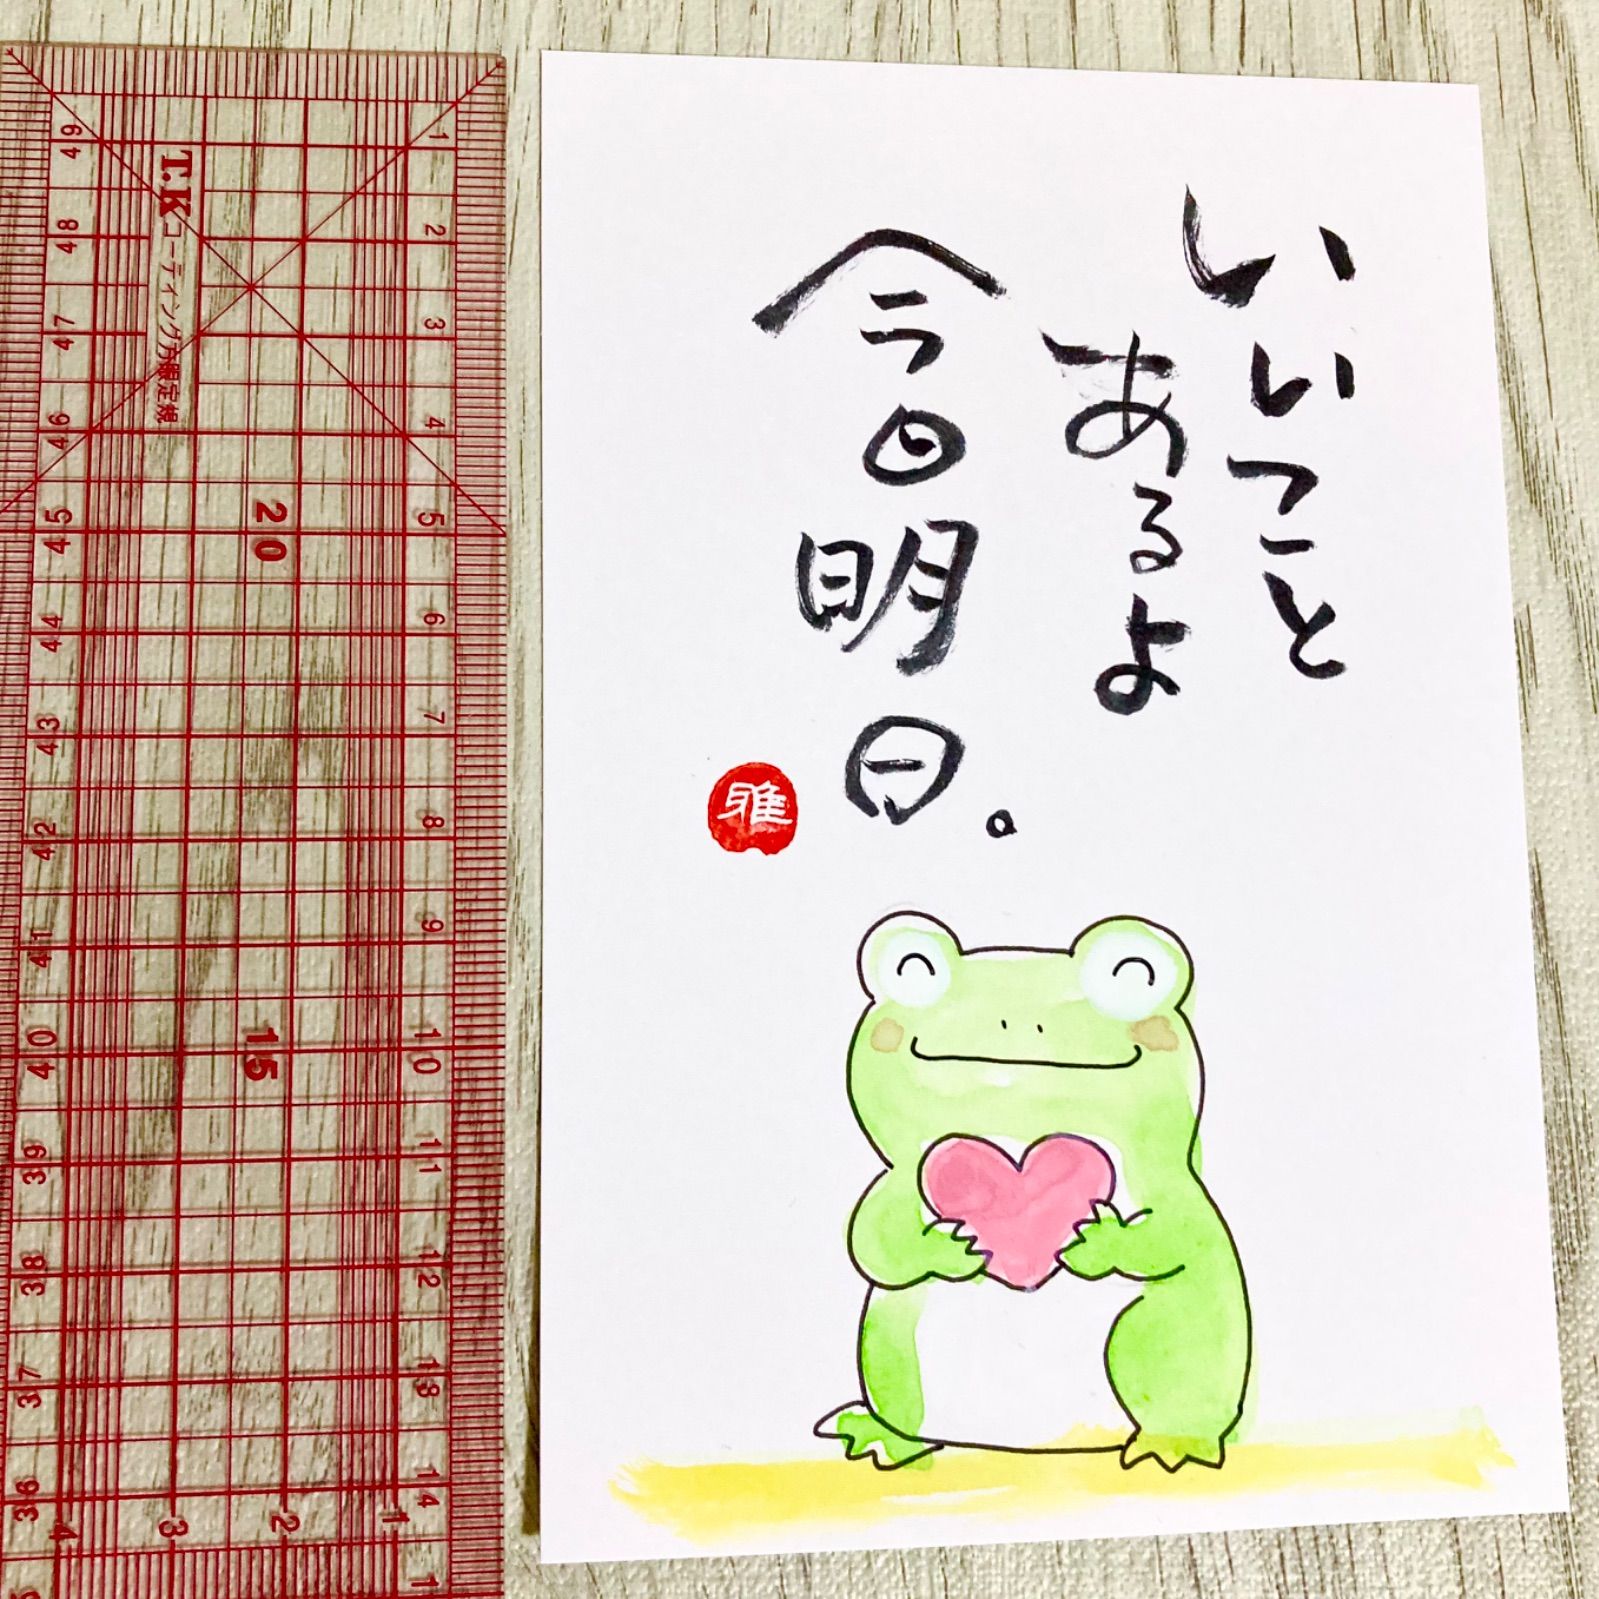 いいこと
あるよ
今日明日。
雅
T.K コーティング方眼定規
1
2
3
4
5
6
7
8
9
10
11
12
13
14
49
48
47
46
45
44
43
42
41
40
39
38
37
36
20
15
4
3
2
1